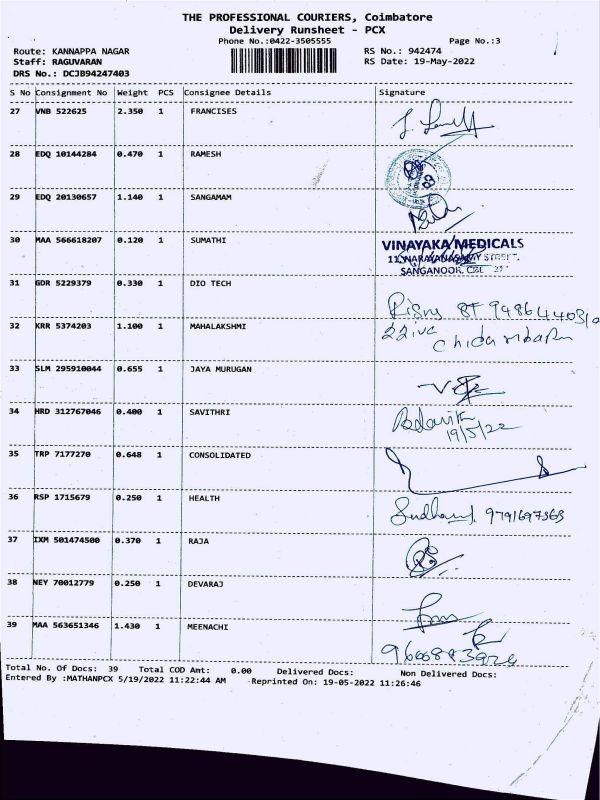 THE PROFESSIONAL COURIERS, Coimbatore
Delivery Runsheet - PCX
Phone No.:0422-3505555
Page No.:3
Route: KANNAPPA NAGAR
RS No.: 942474
Staff: RAGUVARAN
RS Date: 19-May-2022
DRS No.: DCJB94247403
S No Consignment No Weight PCS Consignee Details Signature
27 VNB 522625 2.350 1 FRANCISES
28 EDQ 10144284 0.470 1 RAMESH
29 EDQ 20130657 1.140 1 SANGAMAM
30 MAA 566618207 0.120 1 SUMATHI
VINAYAKA MEDICALS
11, NARAYANASAMY STREET,
SANGANOOR, CBE
31 GDR 5229379 0.330 1 DIO TECH
32 KRR 5374203 1.100 1 MAHALAKSHMI
33 SLM 295910044 0.655 1 JAYA MURUGAN
34 HRD 312767046 0.400 1 SAVITHRI
19/5/22
35 TRP 7177270 0.648 1 CONSOLIDATED
36 RSP 1715679 0.250 1 HEALTH
37 IXM 501474500 0.370 1 RAJA
38 NEY 70012779 0.250 1 DEVARAJ
39 MAA 563651346 1.430 1 MEENACHI
Total No. Of Docs: 39 Total COD Amt: 0.00 Delivered Docs: Non Delivered Docs:
Entered By :MATHANPCX 5/19/2022 11:22:44 AM Reprinted On: 19-05-2022 11:26:46